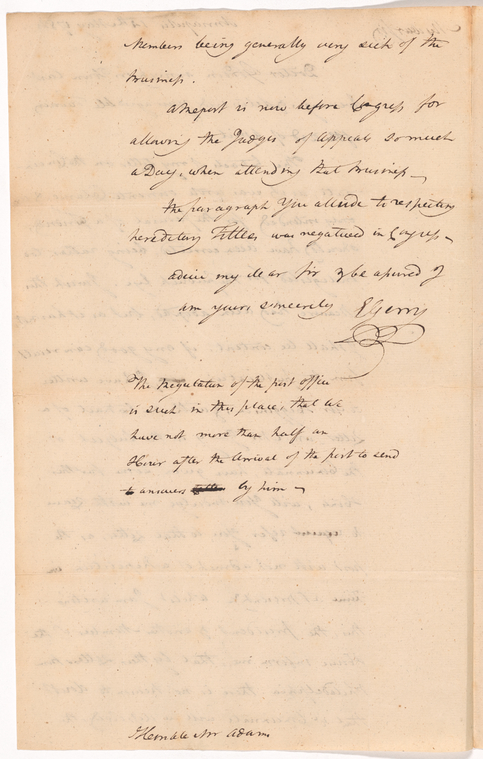 Members being generally very sick of the
business.
a Report is now before Congress for
allowing the Judges of Appeals so much
a Day, when attending that business —
the paragraph You allude to respecting
hereditary Titles was negatived in Congress —
adieu my dear sir & be assured I
am yours sincerely EGerry
The Regulation of the post office
is such in this place, that we
have not more than half an
Hour after the arrival of the post to send
answers by him —
Honble Mr Adams